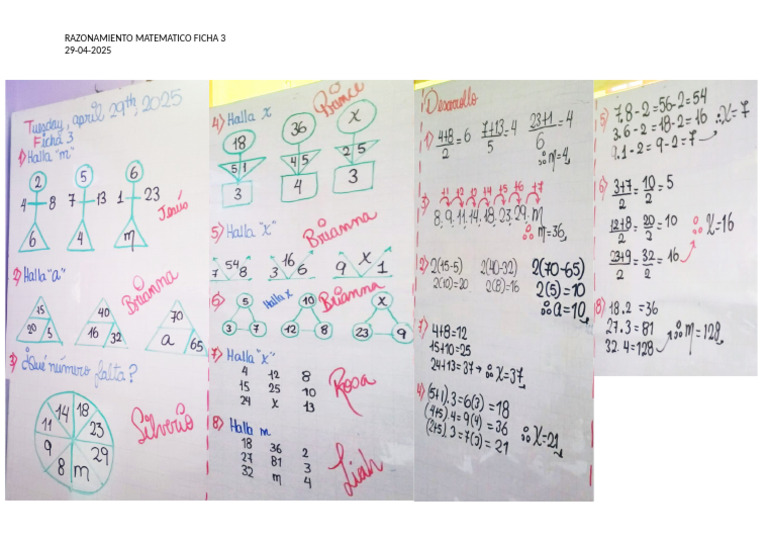 RAZONAMIENTO MATEMATICO FICHA 3
29-04-2025
Tuesday, april 29th, 2025
Ficha 3
1) Halla "m"
2 5 6
4 8 7 13 1 23
6 4 m
Jesús
2) Halla "a"
Brianna
15 40 70
20 5 16 32 a 65
3) ¿Qué número falta?
14 18
11 23
9 29
8 m
Silverio
4) Halla x
Bianca
18 36 x
5 1 4 5 2 5
3 4 3
5) Halla "x"
Brianna
7 54 8 3 16 6 9 x 1
6) Halla x
Brianna
5 10 x
3 7 12 8 23 9
7) Halla "x"
4 12 8
15 25 10
24 x 13
Rosa
8) Halla m
18 36 2
27 81 3
32 m 4
Liah
Desarrollo
1) 4+8/2 = 6 7+13/5 = 4 23+1/6 = 4
∴ m=4
3) +1 +2 +3 +4 +5 +6 +7
8. 9. 11. 14. 18. 23. 29. m
∴ m=36
2) 2(15-5) 2(40-32) 2(70-65)
2(10)=20 2(8)=16 2(5)=10
∴ a=10
7) 4+8=12
15+10=25
24+13=37 → ∴ x=37
4) (5+1).3=6(3)=18
(4+5).4=9(4)=36
(2+5).3=7(3)=21
∴ x=21
5) 7.8-2=56-2=54
3.6-2=18-2=16 ∴ x=7
9.1-2=9-2=7
6) 3+7/2 = 10/2 = 5
12+8/2 = 20/2 = 10 ∴ x=16
23+9/2 = 32/2 = 16
8) 18.2=36
27.3=81
32.4=128 ∴ m=128